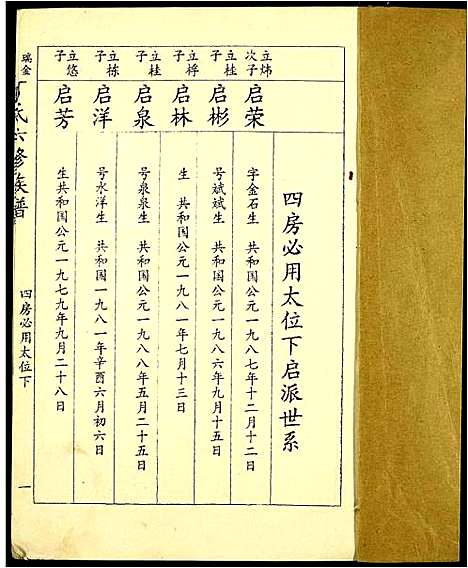 四房必用太位下启派世系
立炜次子
启荣
字金石生 共和国公元一九八七年十二月十二日
立桂子
启彬
号斌斌生 共和国公元一九八六年九月十五日
立桴子
启林
生 共和国公元一九八一年七月十三日
立桂子
启泉
号泉泉生 共和国公元一九八八年五月二十五日
立栋子
启洋
号永洋生 共和国一九八一年辛酉六月初六日
立悠子
启芳
生共和国公元一九七九年九月二十八日
瑞金
氏六修族谱
四房必用太位下
一